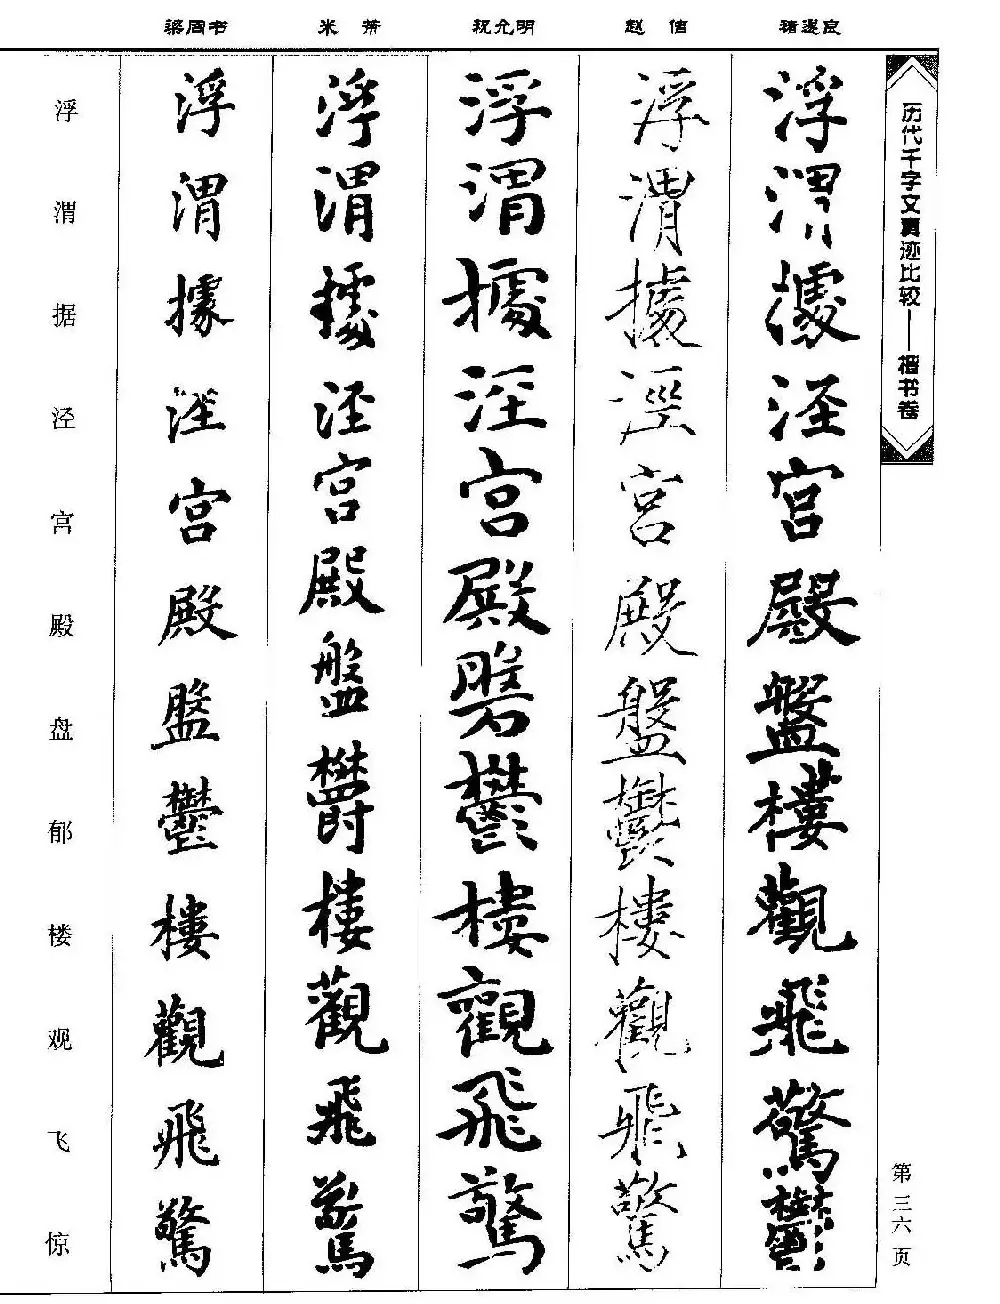 历代千字文真迹比较——楷书卷
第三六页
褚遂良
浮渭據泾宫殿盤樓觀飛驚鬱
赵佶
浮渭據涇宫殿盤鬱樓觀飛驚
祝允明
浮渭據泾宫殿磐鬱樓觀飛驚
米芾
浮渭據泾宫殿盤欝樓觀飛驚
梁同书
浮渭據泾宫殿盤鬱樓觀飛驚
浮渭据泾宫殿盘郁楼观飞惊